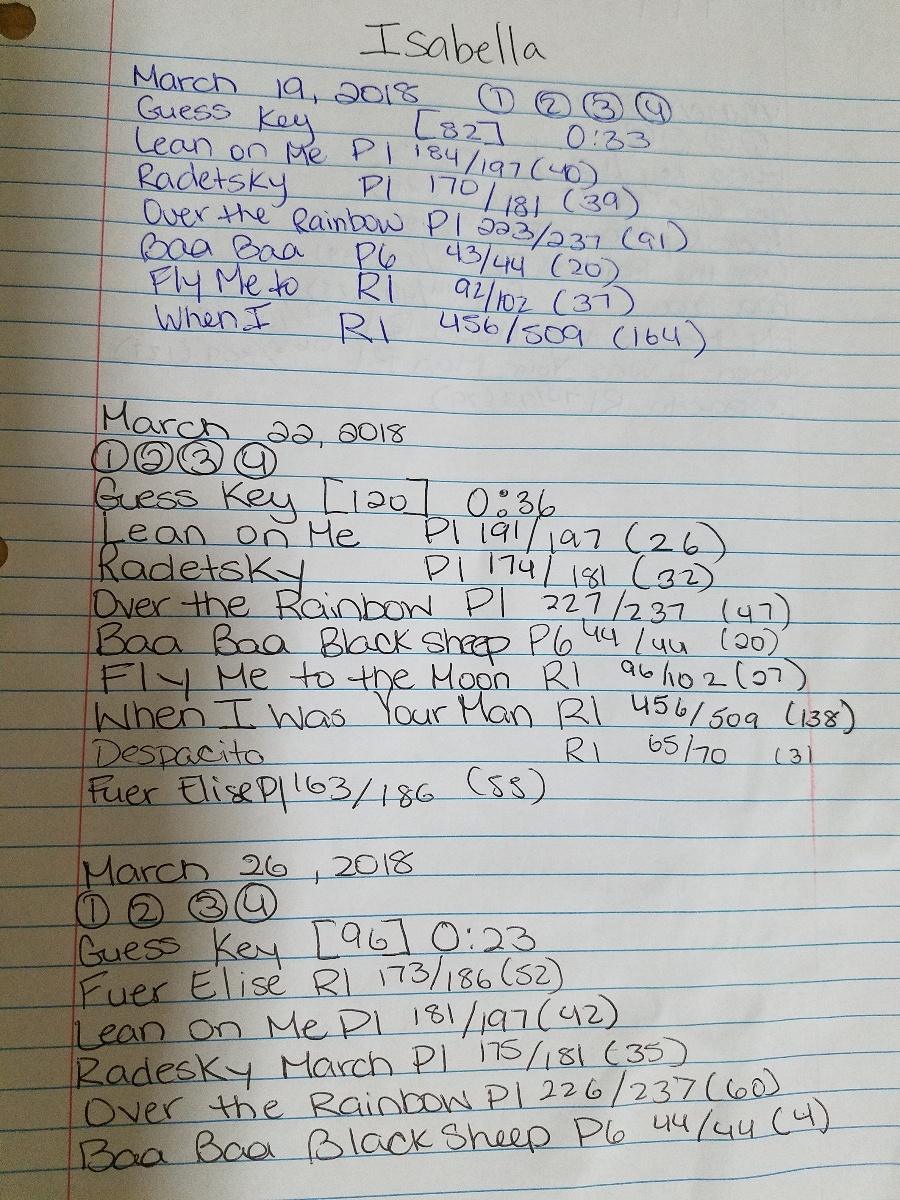 Isabella
March 19, 2018 ① ② ③ ④
Guess Key [82] 0:33
Lean on Me P1 184/197 (40)
Radetsky P1 170/181 (39)
Over the Rainbow P1 223/237 (91)
Baa Baa P6 43/44 (20)
Fly Me to R1 92/102 (37)
When I R1 456/509 (164)
March 22, 2018
① ② ③ ④
Guess Key [120] 0:36
Lean on Me P1 191/197 (26)
Radetsky P1 174/181 (32)
Over the Rainbow P1 227/237 (47)
Baa Baa Black Sheep P6 44/44 (20)
Fly Me to the Moon R1 96/102 (27)
When I Was Your Man R1 456/509 (138)
Despacito R1 65/70 (3)
Fuer Elise P1 163/186 (55)
March 26, 2018
① ② ③ ④
Guess Key [96] 0:23
Fuer Elise R1 173/186 (52)
Lean on Me P1 181/197 (42)
Radesky March P1 175/181 (35)
Over the Rainbow P1 226/237 (60)
Baa Baa Black Sheep P6 44/44 (4)